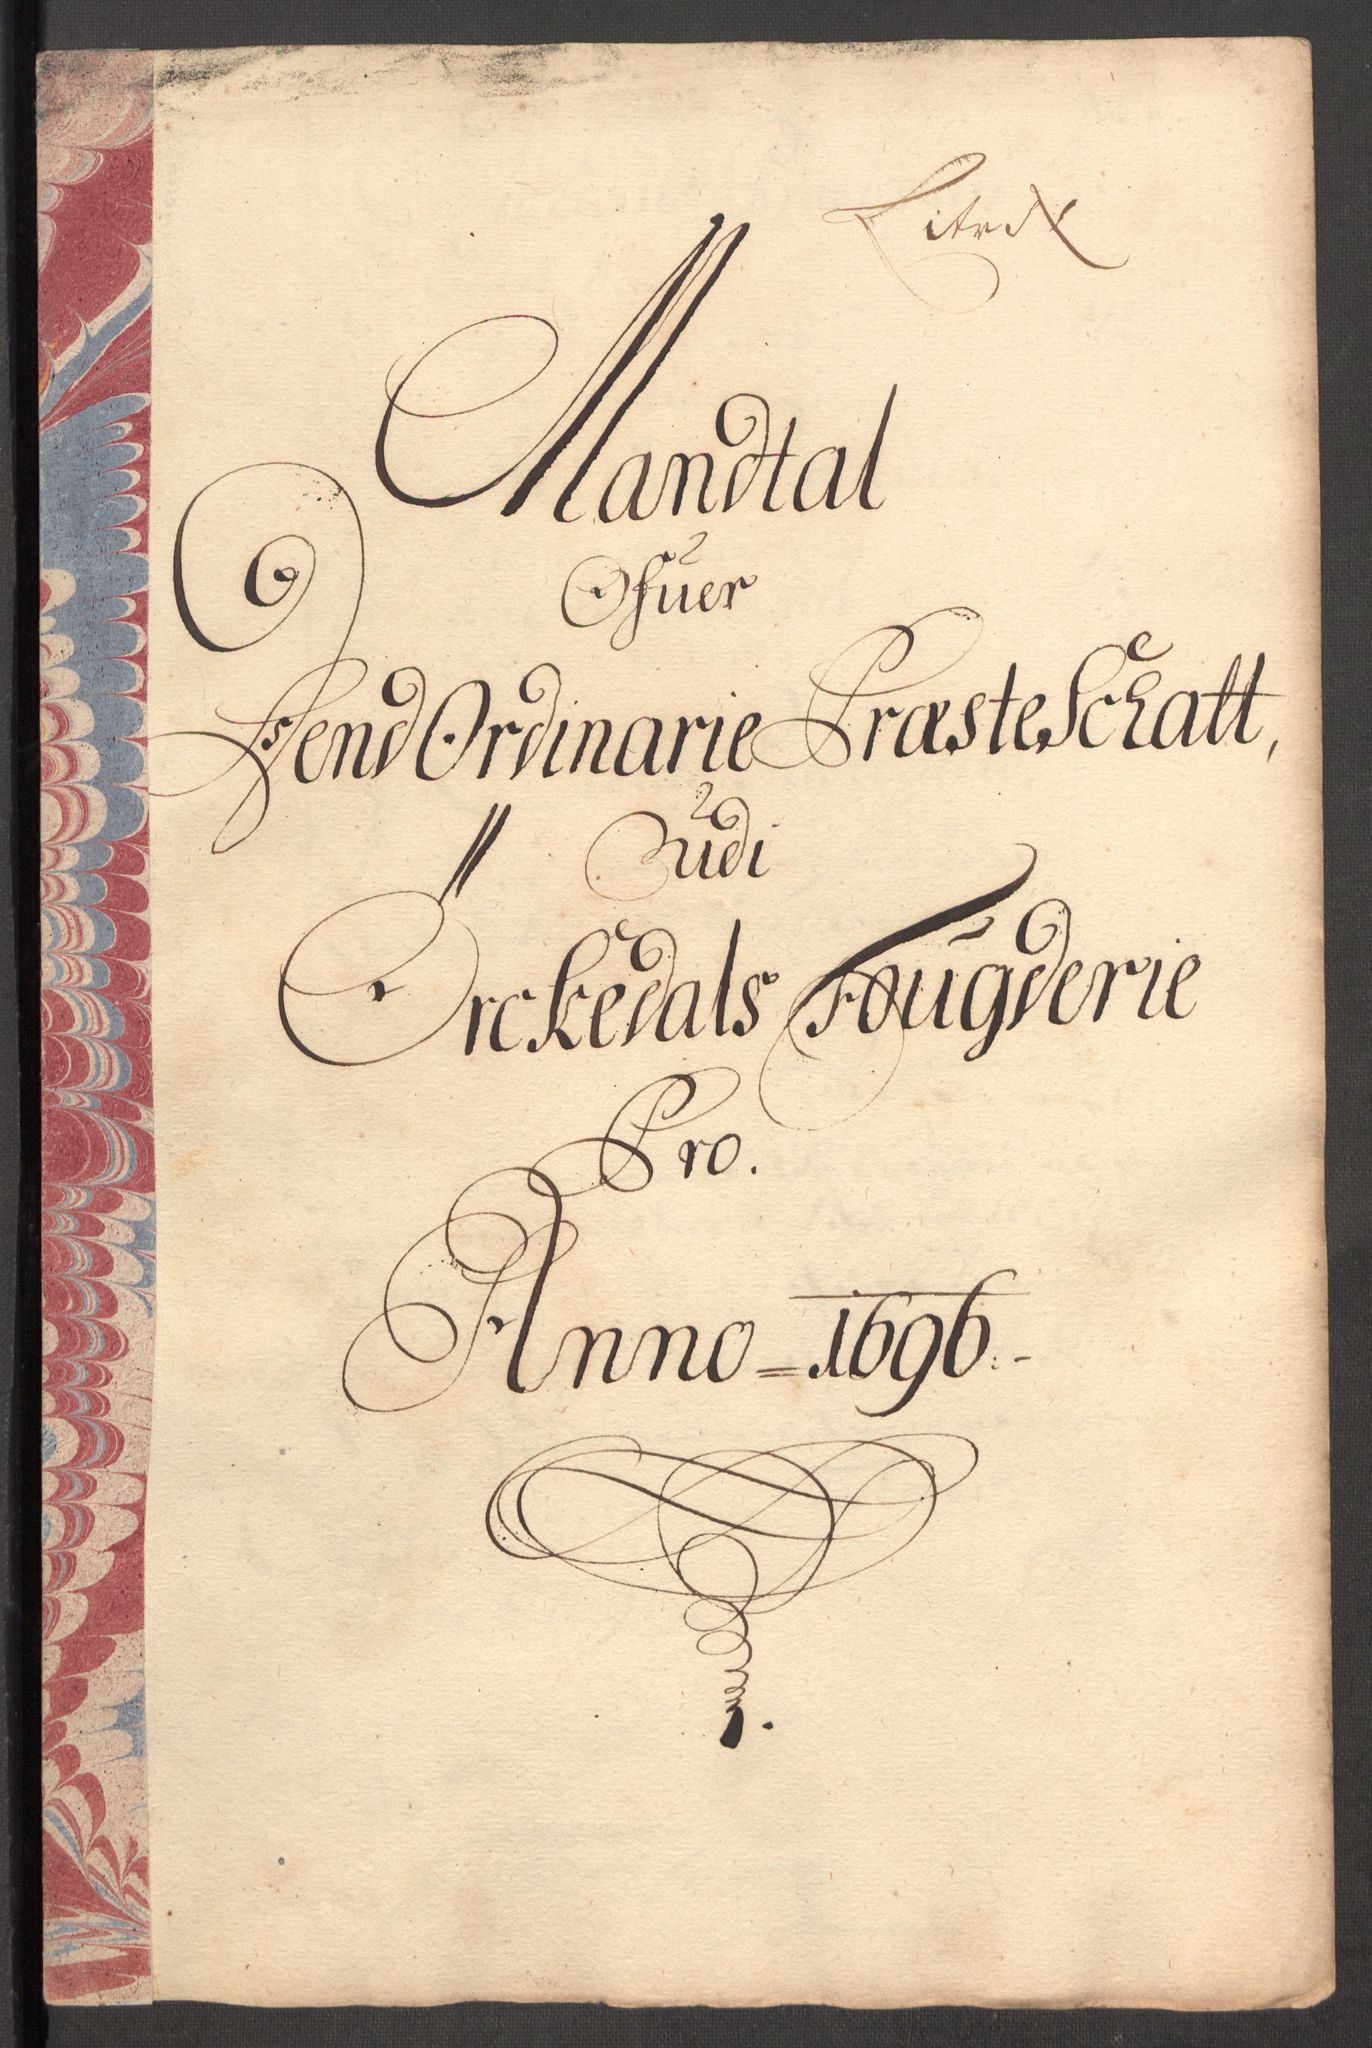 Mandtal
Ofuer
Dend Ordinarie Præste Schatt,
Udi
Orckedals Fougderie
Pro.
Anno = 1696.